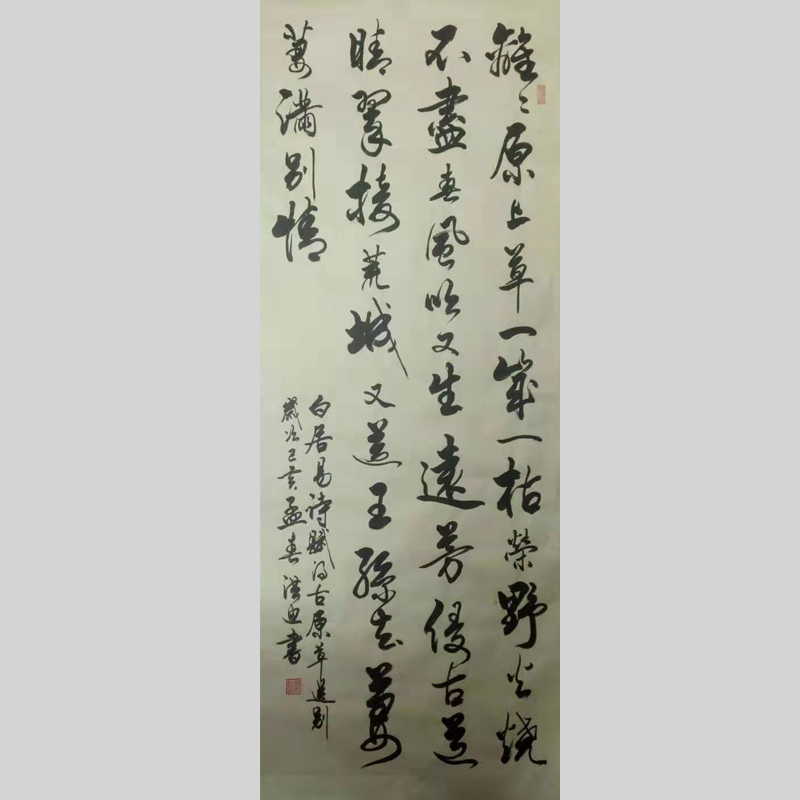 離〻原上草一歲一枯榮野火燒
不盡春風吹又生遠芳侵古道
晴翠接荒城又送王孫去萋
萋滿別情
白居易诗賦得古原草送別
歲次己亥孟春洪迪書